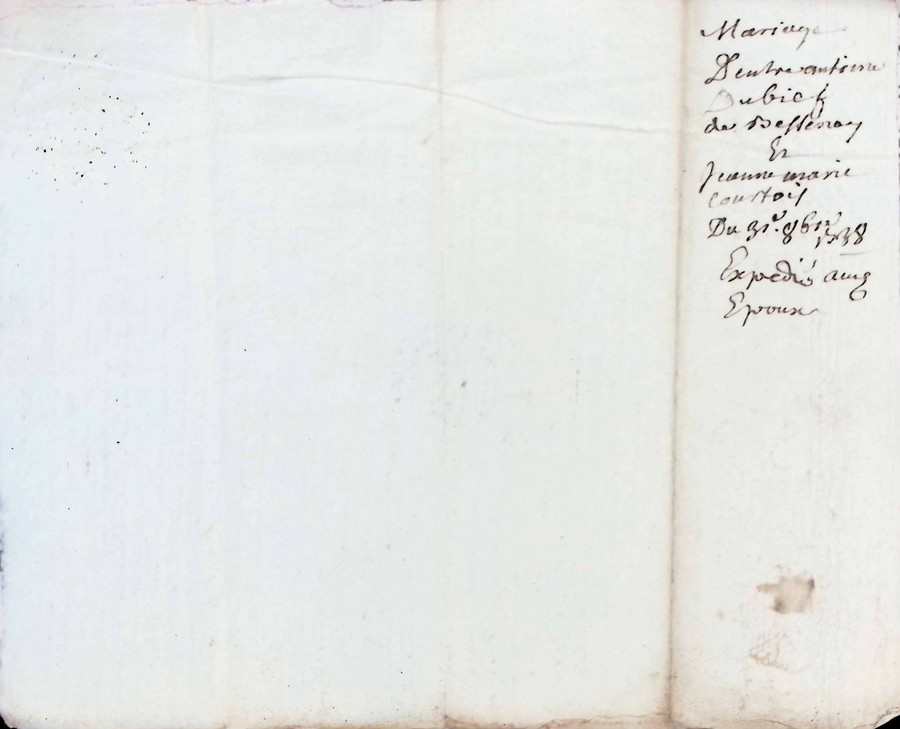 Mariage
D'entre antoine
Dubief
de Bessenay
Et
Jeanne marie
Courtois
Du 31e. 8bre 1738
Expedié aux
Epoux